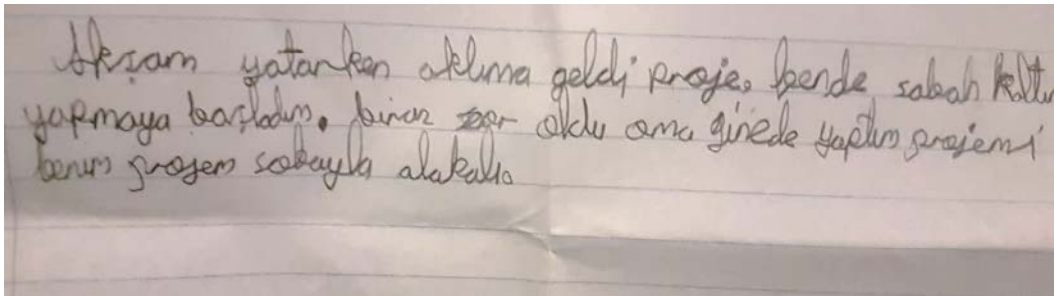 Akşam yatarken aklıma geldi proje. bende sabah kaltı
yapmaya başladım. biraz zor oldu ama ginede yaptım projemi
benim projem sobayla alakalı.